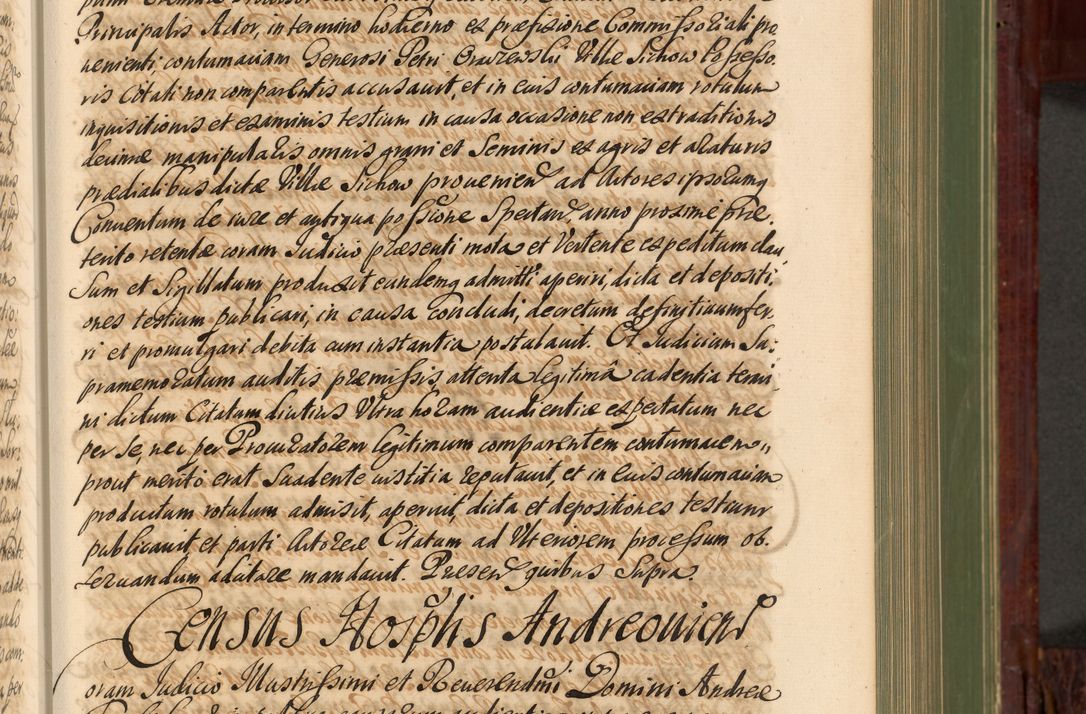 Principalis Actor, in termino hodierno ex præfixione Commissoriali pro
uenienti, contumaciam Generosi Petri Villæ Sichow Possesso
ris Citati non comparentis accusauit, et in eius contumaciam rotulum
inquisitionis et examinis testium in causa occasione non extraditionis
decimæ manipularis omnis grani et Seminis ex agris et araturis
prædialibus dictæ Villæ Sichow prouenien ad Actores ipsorumq
Conuentum de iure et antiqua possione Spectan anno proxime præ
terito retentæ coram Judicio præsenti mota et Vertente expeditum clau
sum et Sigillatum produxit eundemq admitti aperiri, dicta et depositi
ones testium publicari, in causa concludi, decretum definitiuum fer
ri et promulgari debita cum instantia postulauit. Et Judicium Su:
pramemoratum auditis præmissis, attenta legitimâ cadentia termi
ni dictum Citatum diutius Vltra horam audientiæ expectatum nec
per se nec per Procuratorem legitimum comparentem contumacem
prout merito erat Suadente iustitia reputauit, et in eius contumaciam
productum rotulum admisit, aperuit, dicta et depositiones testium
publicauit, et parti Actoreæ Citatum ad Vlteriorem processum ob.
seruandum adcitare mandauit. Presen quibus Supra.
Census Hosplis Andreouien
oram Judicio Illustrissimi et Reuerendmi Domini Andreæ